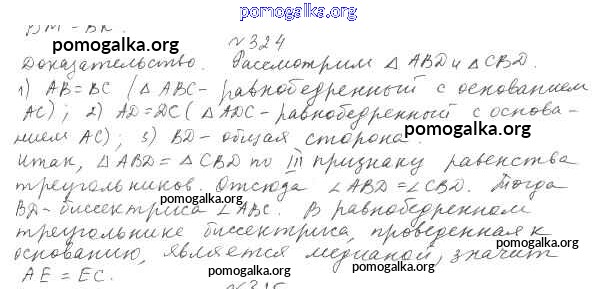 pomogalka.org
ВМ = ВК.
pomogalka.org
№324
Доказательство. Рассмотрим △ ABD и △ CBD.
pomogalka.org
1) AB = BC (△ ABC - равнобедренный с основанием
AC); 2) AD = DC (△ ADC - равнобедренный с основа-
нием AC); 3) BD - общая сторона.
pomogalka.org
Итак, △ ABD = △ CBD по III признаку равенства
треугольников. Отсюда ∠ABD = ∠CBD. Тогда
BD - биссектриса ∠ABC. В равнобедренном
pomogalka.org
треугольнике биссектриса, проведенная к
основанию, является медианой, значит
pomogalka.org
AE = EC.
pomogalka.org
pomogalka.org
№325